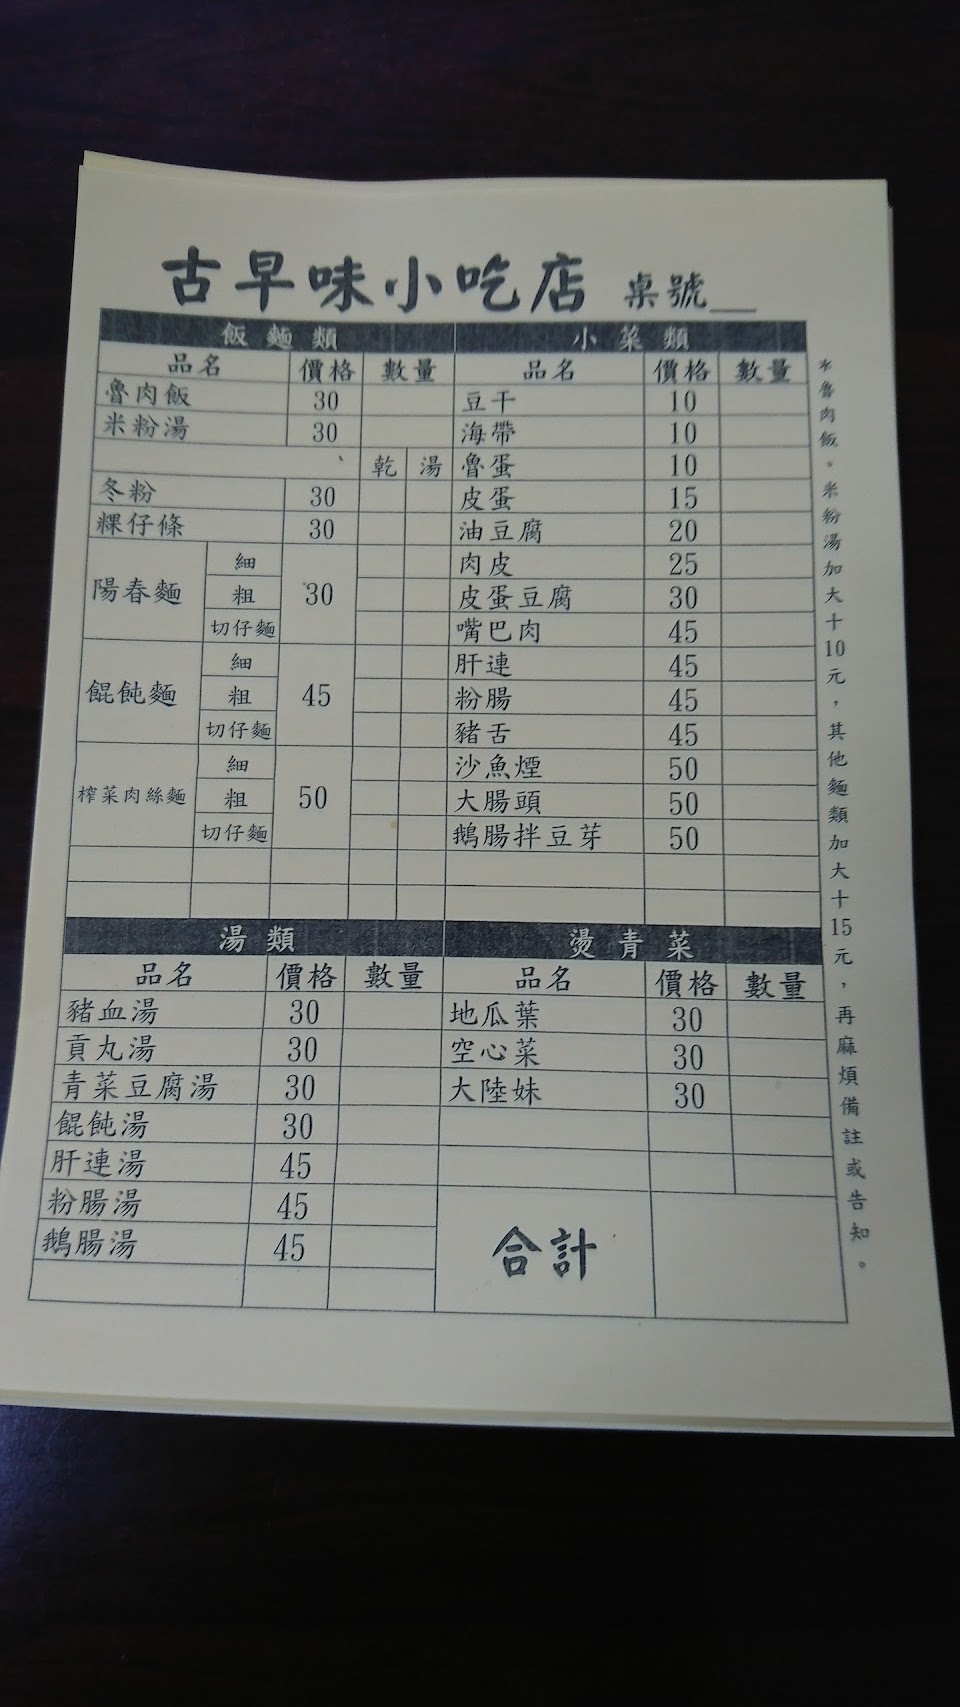 古早味小吃店 桌號__
飯麵類
品名 價格 數量
魯肉飯 30
米粉湯 30
乾 湯
冬粉 30
粿仔條 30
陽春麵 細 粗 切仔麵 30
餛飩麵 細 粗 切仔麵 45
榨菜肉絲麵 細 粗 切仔麵 50
小菜類
品名 價格 數量
豆干 10
海帶 10
魯蛋 10
皮蛋 15
油豆腐 20
肉皮 25
皮蛋豆腐 30
嘴巴肉 45
肝連 45
粉腸 45
豬舌 45
沙魚煙 50
大腸頭 50
鵝腸拌豆芽 50
湯類
品名 價格 數量
豬血湯 30
貢丸湯 30
青菜豆腐湯 30
餛飩湯 30
肝連湯 45
粉腸湯 45
鵝腸湯 45
燙青菜
品名 價格 數量
地瓜葉 30
空心菜 30
大陸妹 30
合計
*魯肉飯。米粉湯加大十10元，其他麵類加大十15元，再麻煩備註或告知。